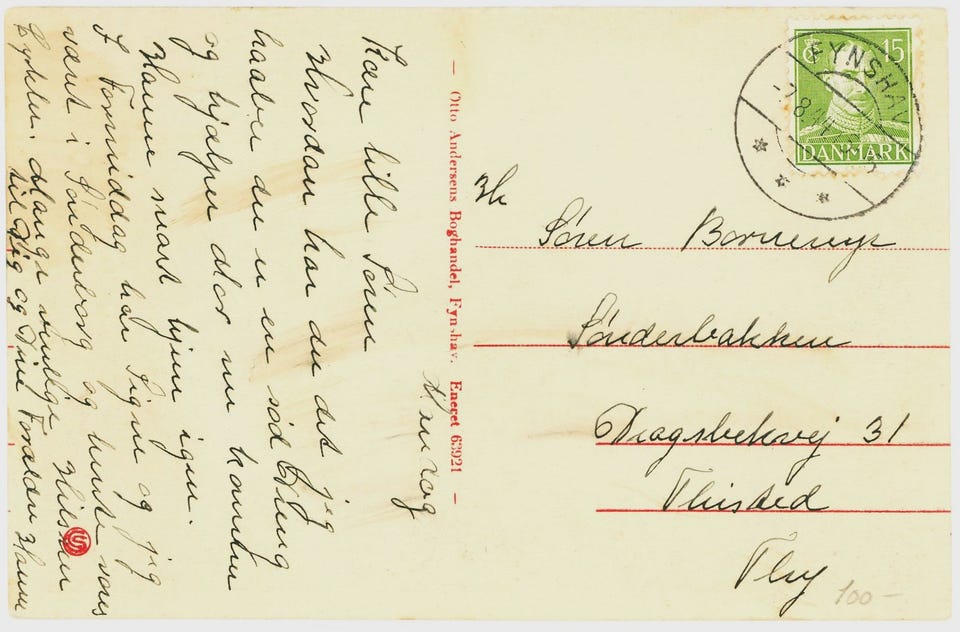 Mandag
Kære lille Søren
Hvordan har du det jeg
haaber du er en sød Dreng
og hjælper Mor nu kommer
Hanne snart hjem igen.
I Formiddag har Signe og jeg
været i Sønderborg og hente vores
Cykler. Mange venlige Hilsner
til Dig og Dine Forældre Hanne
— Otto Andersens Boghandel, Fynshav. Eneret 63921 —
15
DANMARK
FYNSHAV
Hr
Søren Borrenys
Sønderbakken
Dragsbekvej 31
Thisted
Thy
100-